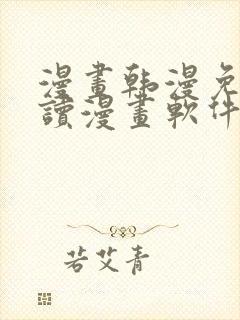 漫畫韩漫免
讀漫畫軟件
若艾青